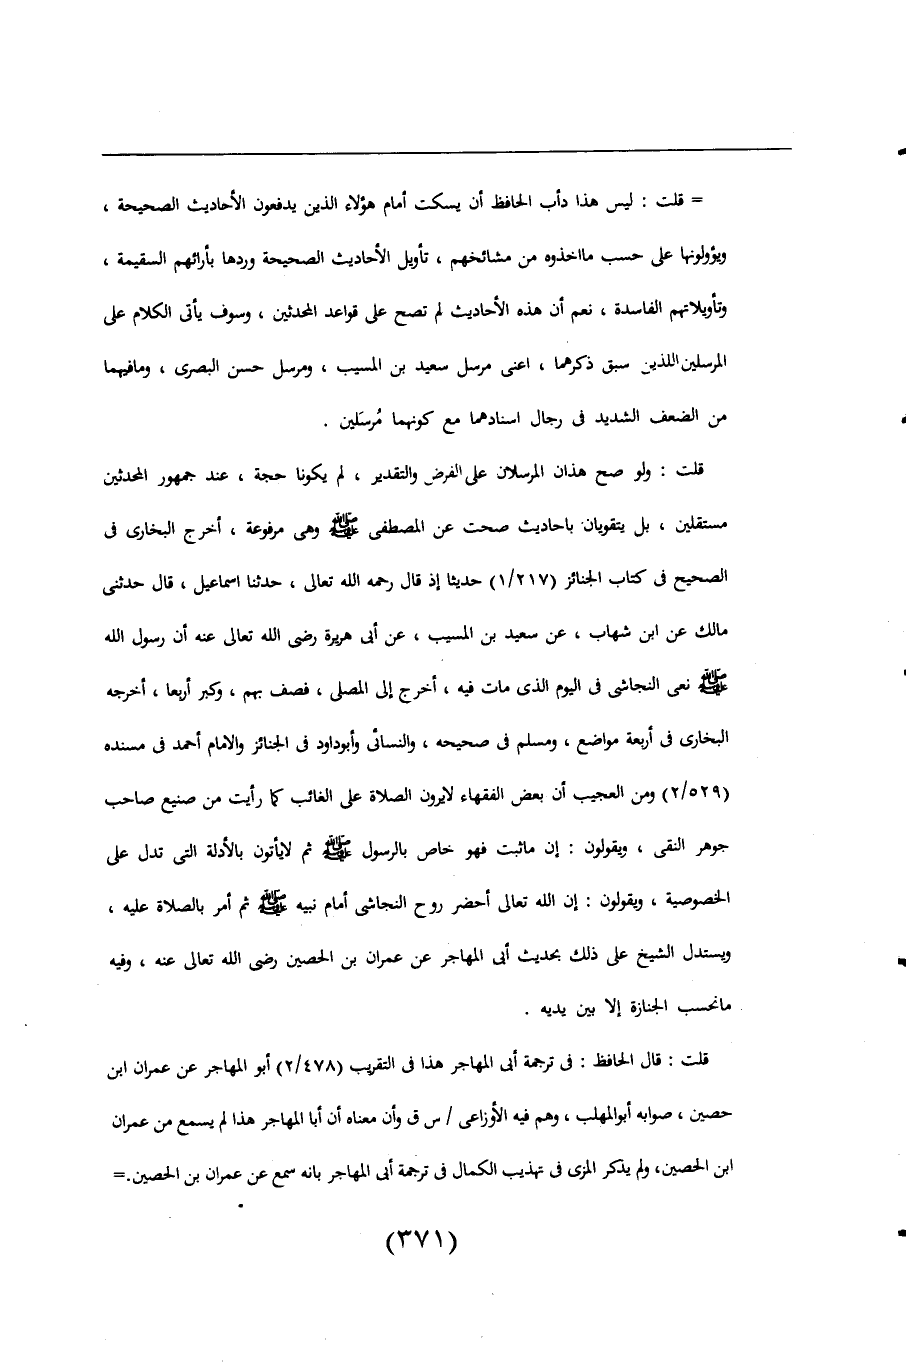 = قلت : ليس هذا دأب الحافظ أن يسكت أمام هؤلاء الذين يدفعون الأحاديث الصحيحة ،
ويؤولونها على حسب مااخذوه من مشائخهم ، تأويل الأحاديث الصحيحة وردها بأرائهم السقيمة ،
وتأويلاتهم الفاسدة ، نعم أن هذه الأحاديث لم تصح على قواعد المحدثين ، وسوف يأتى الكلام على
المرسلين اللذين سبق ذكرهما ، اعنى مرسل سعيد بن المسيب ، ومرسل حسن البصرى ، ومافيهما
من الضعف الشديد فى رجال اسنادهما مع كونهما مُرسَلين .
قلت : ولو صح هذان المرسلان على الفرض والتقدير ، لم يكونا حجة ، عند جمهور المحدثين
مستقلين ، بل يتقويان باحاديث صحت عن المصطفى ﷺ وهى مرفوعة ، أخرج البخارى فى
الصحيح فى كتاب الجنائز (١/٢١٧) حديثا إذ قال رحمه الله تعالى ، حدثنا اسماعيل ، قال حدثنى
مالك عن ابن شهاب ، عن سعيد بن المسيب ، عن أبى هريرة رضى الله تعالى عنه أن رسول الله
ﷺ نعى النجاشى فى اليوم الذى مات فيه ، أخرج إلى المصلى ، فصف بهم ، وكبر أربعا ، أخرجه
البخارى فى أربعة مواضع ، ومسلم فى صحيحه ، والنسائى وأبوداود فى الجنائز والامام أحمد فى مسنده
(٢/٥٢٩) ومن العجيب أن بعض الفقهاء لايرون الصلاة على الغائب كما رأيت من صنيع صاحب
جوهر النقى ، ويقولون : إن ماثبت فهو خاص بالرسول ﷺ ثم لايأتون بالأدلة التى تدل على
الخصوصية ، ويقولون : إن الله تعالى أحضر روح النجاشى أمام نبيه ﷺ ثم أمر بالصلاة عليه ،
ويستدل الشيخ على ذلك بحديث أبى المهاجر عن عمران بن الحصين رضى الله تعالى عنه ، وفيه
مانحسب الجنازة إلا بين يديه .
قلت : قال الحافظ : فى ترجمة أبى المهاجر هذا فى التقريب (٢/٤٧٨) أبو المهاجر عن عمران ابن
حصين ، صوابه أبوالمهلب ، وهم فيه الأوزاعى / س ق وأن معناه أن أبا المهاجر هذا لم يسمع من عمران
ابن الحصين، ولم يذكر المزى فى تهذيب الكمال فى ترجمة أبى المهاجر بانه سمع عن عمران بن الحصين.=
(٣٧١)